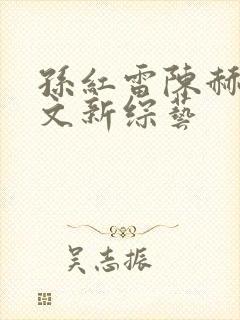 孫紅雷陳赫
文新综藝
吴志振